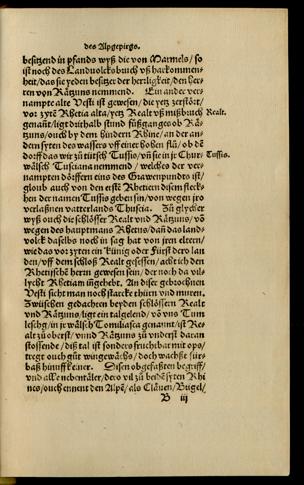 des Alpgepirgs.
besitzend in pfands wyß die von Marmels / so
ist noch des Landuolcks bruch vß harkommen-
heit / das sie yeden besitzer der herrligkeit / den her-
ren von Rätzuns nemmend. Ein ander ver-
nampte alte Vesti ist gewesen / die yetz zerstört /
vor zytē Rhetia alta / yetz Realt vß mißbruch Realt.
genañt / ligt dritthalb stund fůßgangs ob Rä-
tzuns / ouch by dem hindern Rhine / an der an-
dern syten des wassers vff einer hohen flů / ob dē
dorff das wir zů tütsch Tussis / vñ sie in jr Chur- Tussis.
wälsch Tusciana nemmend / welches der ver-
nampten dörffern eins des Grawenpundts ist /
gloub auch von den erstē Rhetiern disem flecks-
hen der namen Tussis geben sin / von wegen jro
verlaßnen vatterlands Thuscia. Zů glycher
wyß ouch die schlösser Realt vnd Rätzuns / vō
wegen des hauptmans Rhetus / dañ das land-
volck daselbs noch in sag hat von jren eltern /
wie das vor zyten ein künig oder fürst dero lan
den / vff dem schloß Realt gesessen / acht ich den
Rhetischē herrn gewesen sein / der noch da vil-
lycht Rhetiam iñgehebt. An diser gebrochnen
Vesti sicht man noch starcke thürn vnd muren.
Zwüschen gedachten beyden schlössern Realt
vnd Rätzuns / ligt ein talgelend / vō vns Tum
leschg / in jr wälsch Tomiliasca genannt / ist Re-
alt zů oberst / vnnd Rätzuns zů vnderst daran
stossende / diß tal ist sonders fruchtbar mit ops /
tregt ouch gůt wirgewächs / doch wachßt für-
baß hinuff keiner. Disen obgefaßten begriff /
vnd alle nebentäler / dero vil zů beidē syten Rhi
nes / ouch ennent den Alpē / als Cläuen / Bügel /
B iij